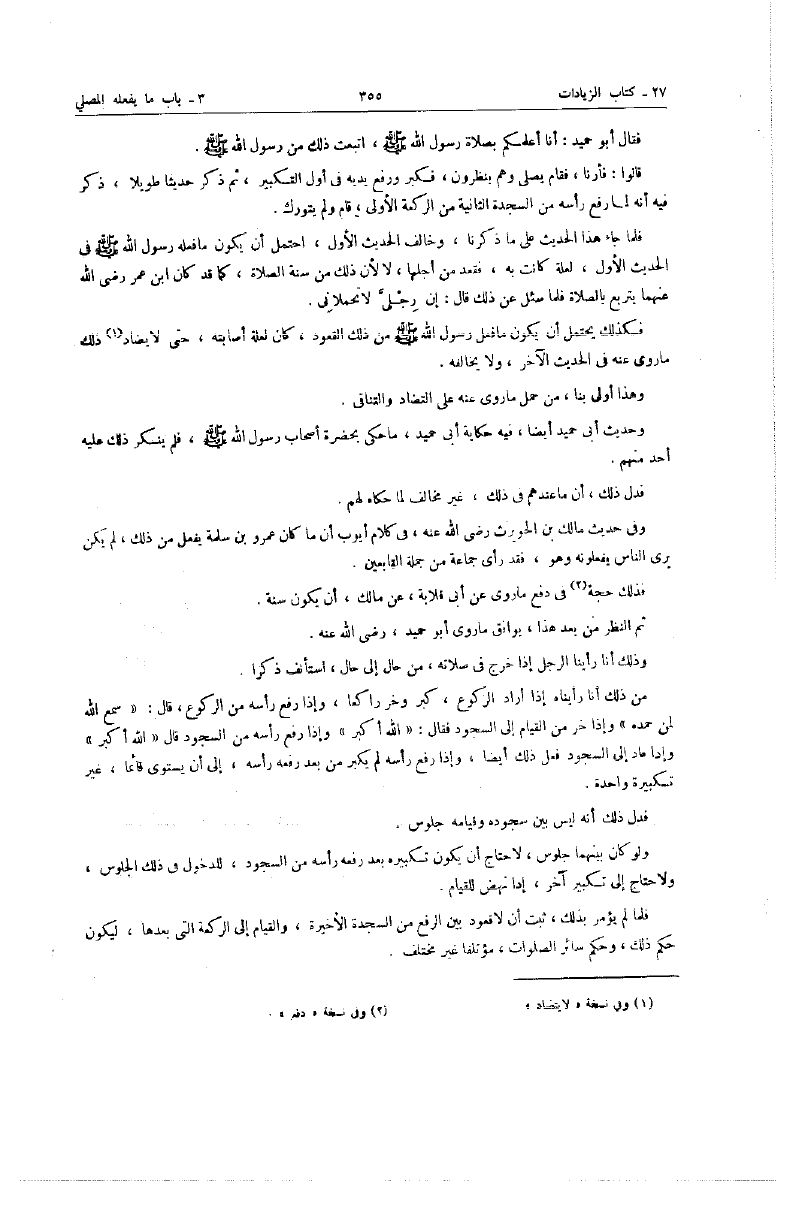 ٢٧ - كتاب الزيادات ٣٥٥ ٣ - باب ما يفعله المصلي
فقال أبو حميد : أنا أعلمكم بصلاة رسول الله ﷺ ، اتبعت ذلك من رسول الله ﷺ .
قالوا : فأرنا ، فقام يصلى وهم ينظرون ، فكبر ورفع يديه فى أول التكبير ، ثم ذكر حديثا طويلا ، ذكر
فيه أنه لما رفع رأسه من السجدة الثانية من الركعة الأولى ، قام ولم يتورك .
فلما جاء هذا الحديث على ما ذكرنا ، وخالف الحديث الأول ، احتمل أن يكون مافعله رسول الله ﷺ فى
الحديث الأول ، لعلة كانت به ، فقعد من أجلها ، لا لأن ذلك من سنة الصلاة ، كما قد كان ابن عمر رضى الله
عنهما يتربع بالصلاة فلما سئل عن ذلك قال : إن رِجْلىَّ لاتحملانى .
فكذلك يحتمل أن يكون مافعل رسول الله ﷺ من ذلك القعود ، كان لعلة أصابته ، حتى لايضاد(١) ذلك
ماروى عنه فى الحديث الآخر ، ولا يخالفه .
وهذا أولى بنا ، من حمل ماروى عنه على التضاد والتنافى .
وحديث أبى حميد أيضا ، فيه حكاية أبى حميد ، ماحكى بحضرة أصحاب رسول الله ﷺ ، فلم ينكر ذلك عليه
أحد منهم .
فدل ذلك ، أن ماعندهم فى ذلك ، غير مخالف لما حكاه لهم .
وفى حديث مالك بن الحويرث رضى الله عنه ، فى كلام أيوب أن ما كان عمرو بن سلمة يفعل من ذلك ، لم يكن
يرى الناس يفعلونه وهو ، فقد رأى جماعة من جملة التابعين .
فذلك حجة(٢) فى دفع ماروى عن أبى قلابة ، عن مالك ، أن يكون سنة .
ثم النظر من بعد هذا ، يوافق ماروى أبو حميد ، رضى الله عنه .
وذلك أنا رأينا الرجل إذا خرج فى صلاته ، من حال إلى حال ، استأنف ذكرا .
من ذلك أنا رأيناه إذا أراد الركوع ، كبر وخر راكعا ، وإذا رفع رأسه من الركوع ، قال : « سمع الله
لمن حمده » وإذا خر من القيام إلى السجود فقال : « الله أكبر » وإذا رفع رأسه من السجود قال « الله أكبر »
وإذا عاد إلى السجود فعل ذلك أيضا ، وإذا رفع رأسه لم يكبر من بعد رفعه رأسه ، إلى أن يستوى قائما ، غير
تكبيرة واحدة .
فدل ذلك أنه ليس بين سجوده وقيامه جلوس .
ولو كان بينهما جلوس ، لاحتاج أن يكون تكبيره بعد رفعه رأسه من السجود ، للدخول فى ذلك الجلوس ،
ولاحتاج إلى تكبير آخر ، إذا نهض للقيام .
فلما لم يؤمر بذلك ، ثبت أن لاقعود بين الرفع من السجدة الأخيرة ، والقيام إلى الركعة التى بعدها ، ليكون
حكم ذلك ، وحكم سائر الصلوات ، مؤتلفا غير مختلف .
(١) وفى نسخة « لايتضاد » (٢) وفى نسخة « دفع » .